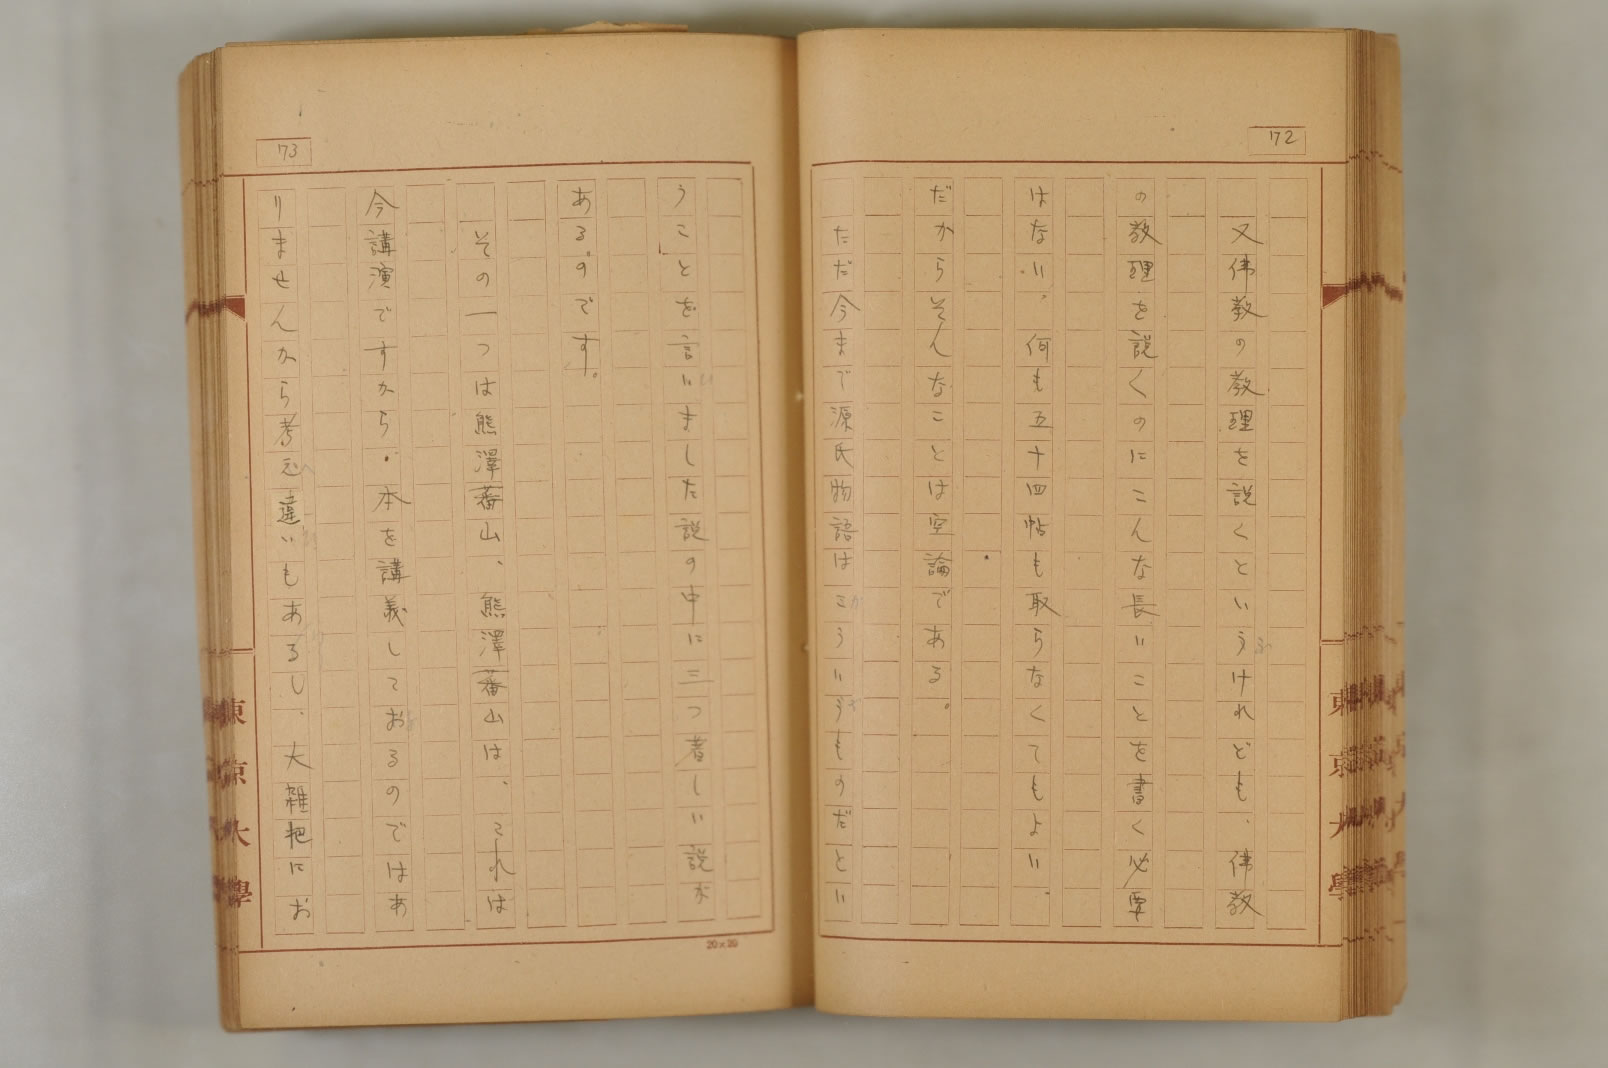 72
又佛教の教理を説くといふうけれども、佛教
の教理を説くのにこんな長いことを書く必要
はない、何も五十四帖も取らなくてもよい、
だからそんなことは空論である。
ただ今まで源氏物語はこういうものだとい
東京大學
73
うことを言いました説の中に三つ著しい説が
ある。のです。
その一つは熊澤蕃山、熊澤蕃山は、これは
今講演ですから、本を講義しておるのではあ
りませんから考え違いもあるし、大雑把にお
東京大學
20×20